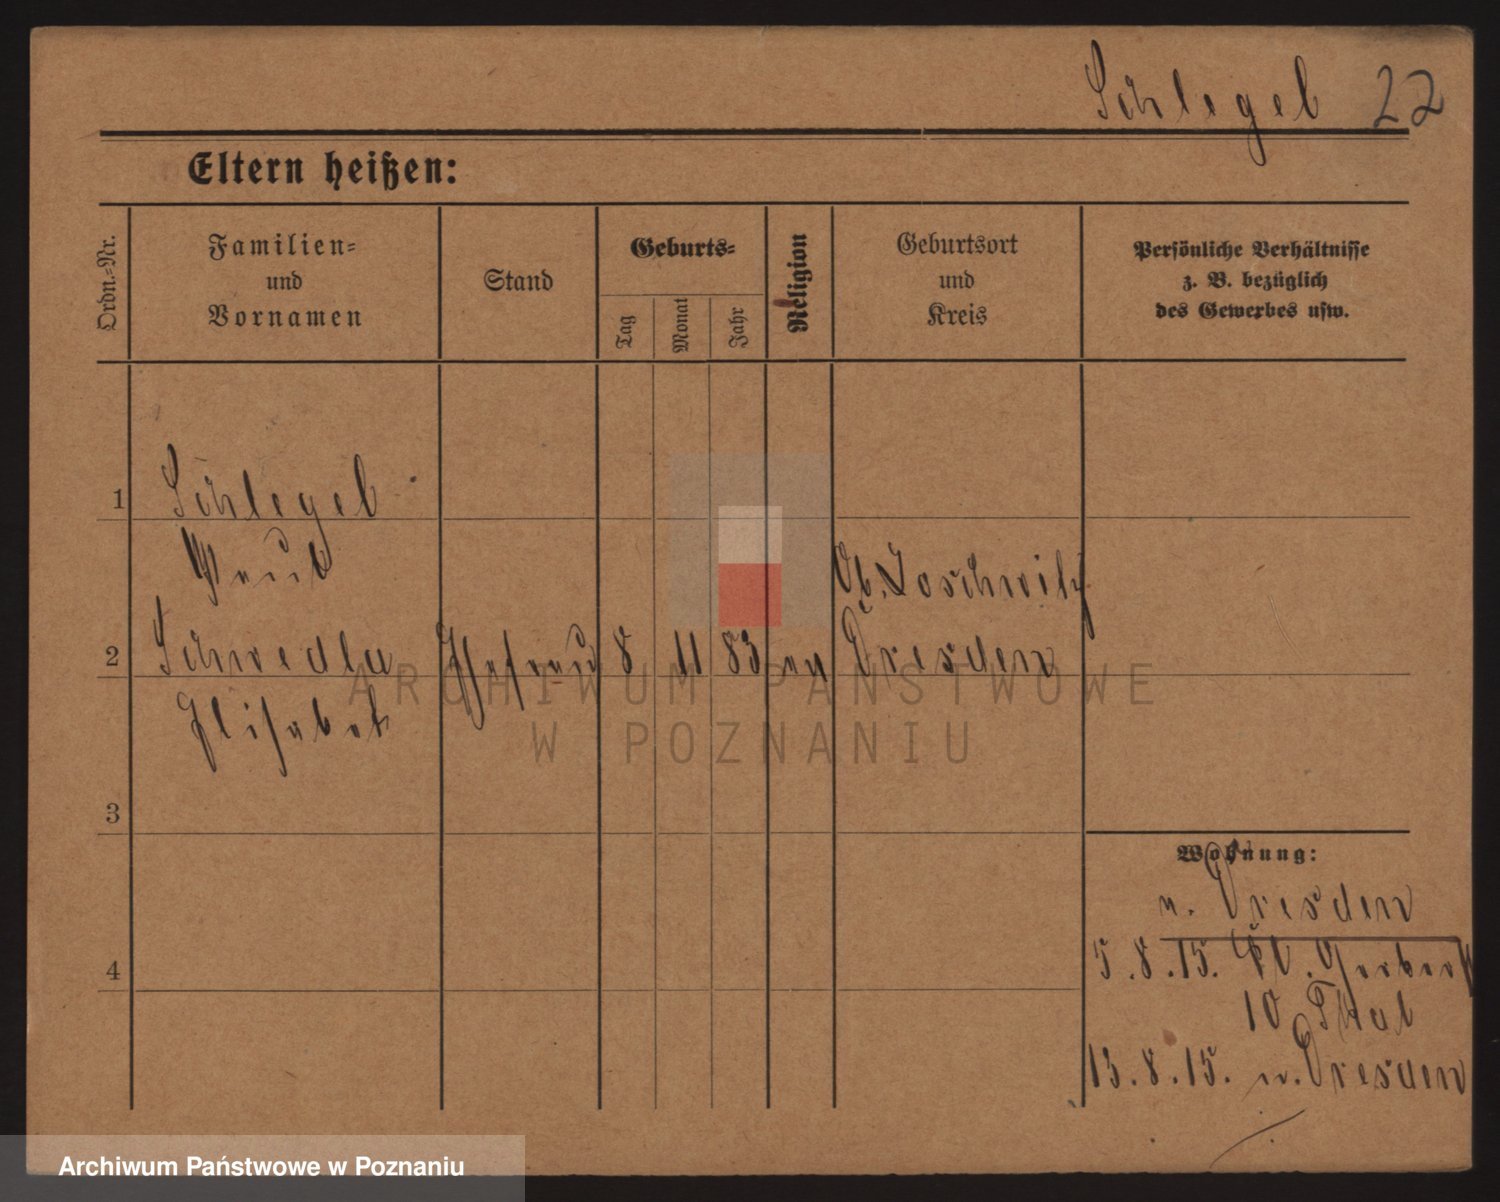 Schlegel 22
Eltern heißen:
Ordn.=Nr.
Familien=
und
Vornamen
Stand
Geburts=
Tag
Monat
Jahr
Religion
Geburtsort
und
Kreis
Persönliche Verhältnisse
z. B. bezüglich
des Gewerbes usw.
1 Schlegel
Paul
Ob. Loschwitz
2 Schwedla Ehefrau 8 11 83 ev Dresden
Elisabet
3
4
Wohnung:
n. Dresden
5.8.15. Kl. Gerberst
10 Thal
13.8.15. n. Dresden
ARCHIWUM PAŃSTWOWE
W POZNANIU
Archiwum Państwowe w Poznaniu